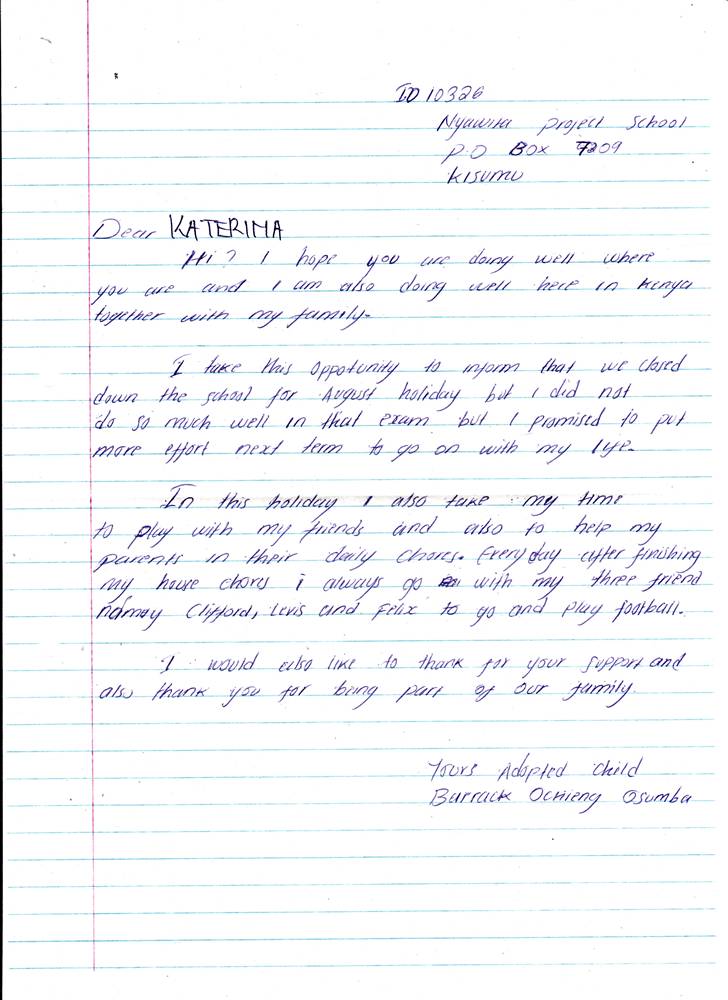 ID 10326
Nyawita project School
P.O BOX 7209
KISUMU
Dear KATERINA
Hi? I hope you are doing well where
you are and I am also doing well here in Kenya
together with my family.
I take this oppotunity to inform that we closed
down the school for August holiday but i did not
do so much well in that exam but I promised to put
more effort next term to go on with my life.
In this holiday I also take my time
to play with my friends and also to help my
parents in their daily chores. Every day after finishing
my house chores i always go with my three friend
namely Clifford, Levis and Felix to go and play football.
I would also like to thank for your support and
also thank you for being part of our family.
Yours Adopted child
Barrack Ochieng Osumba